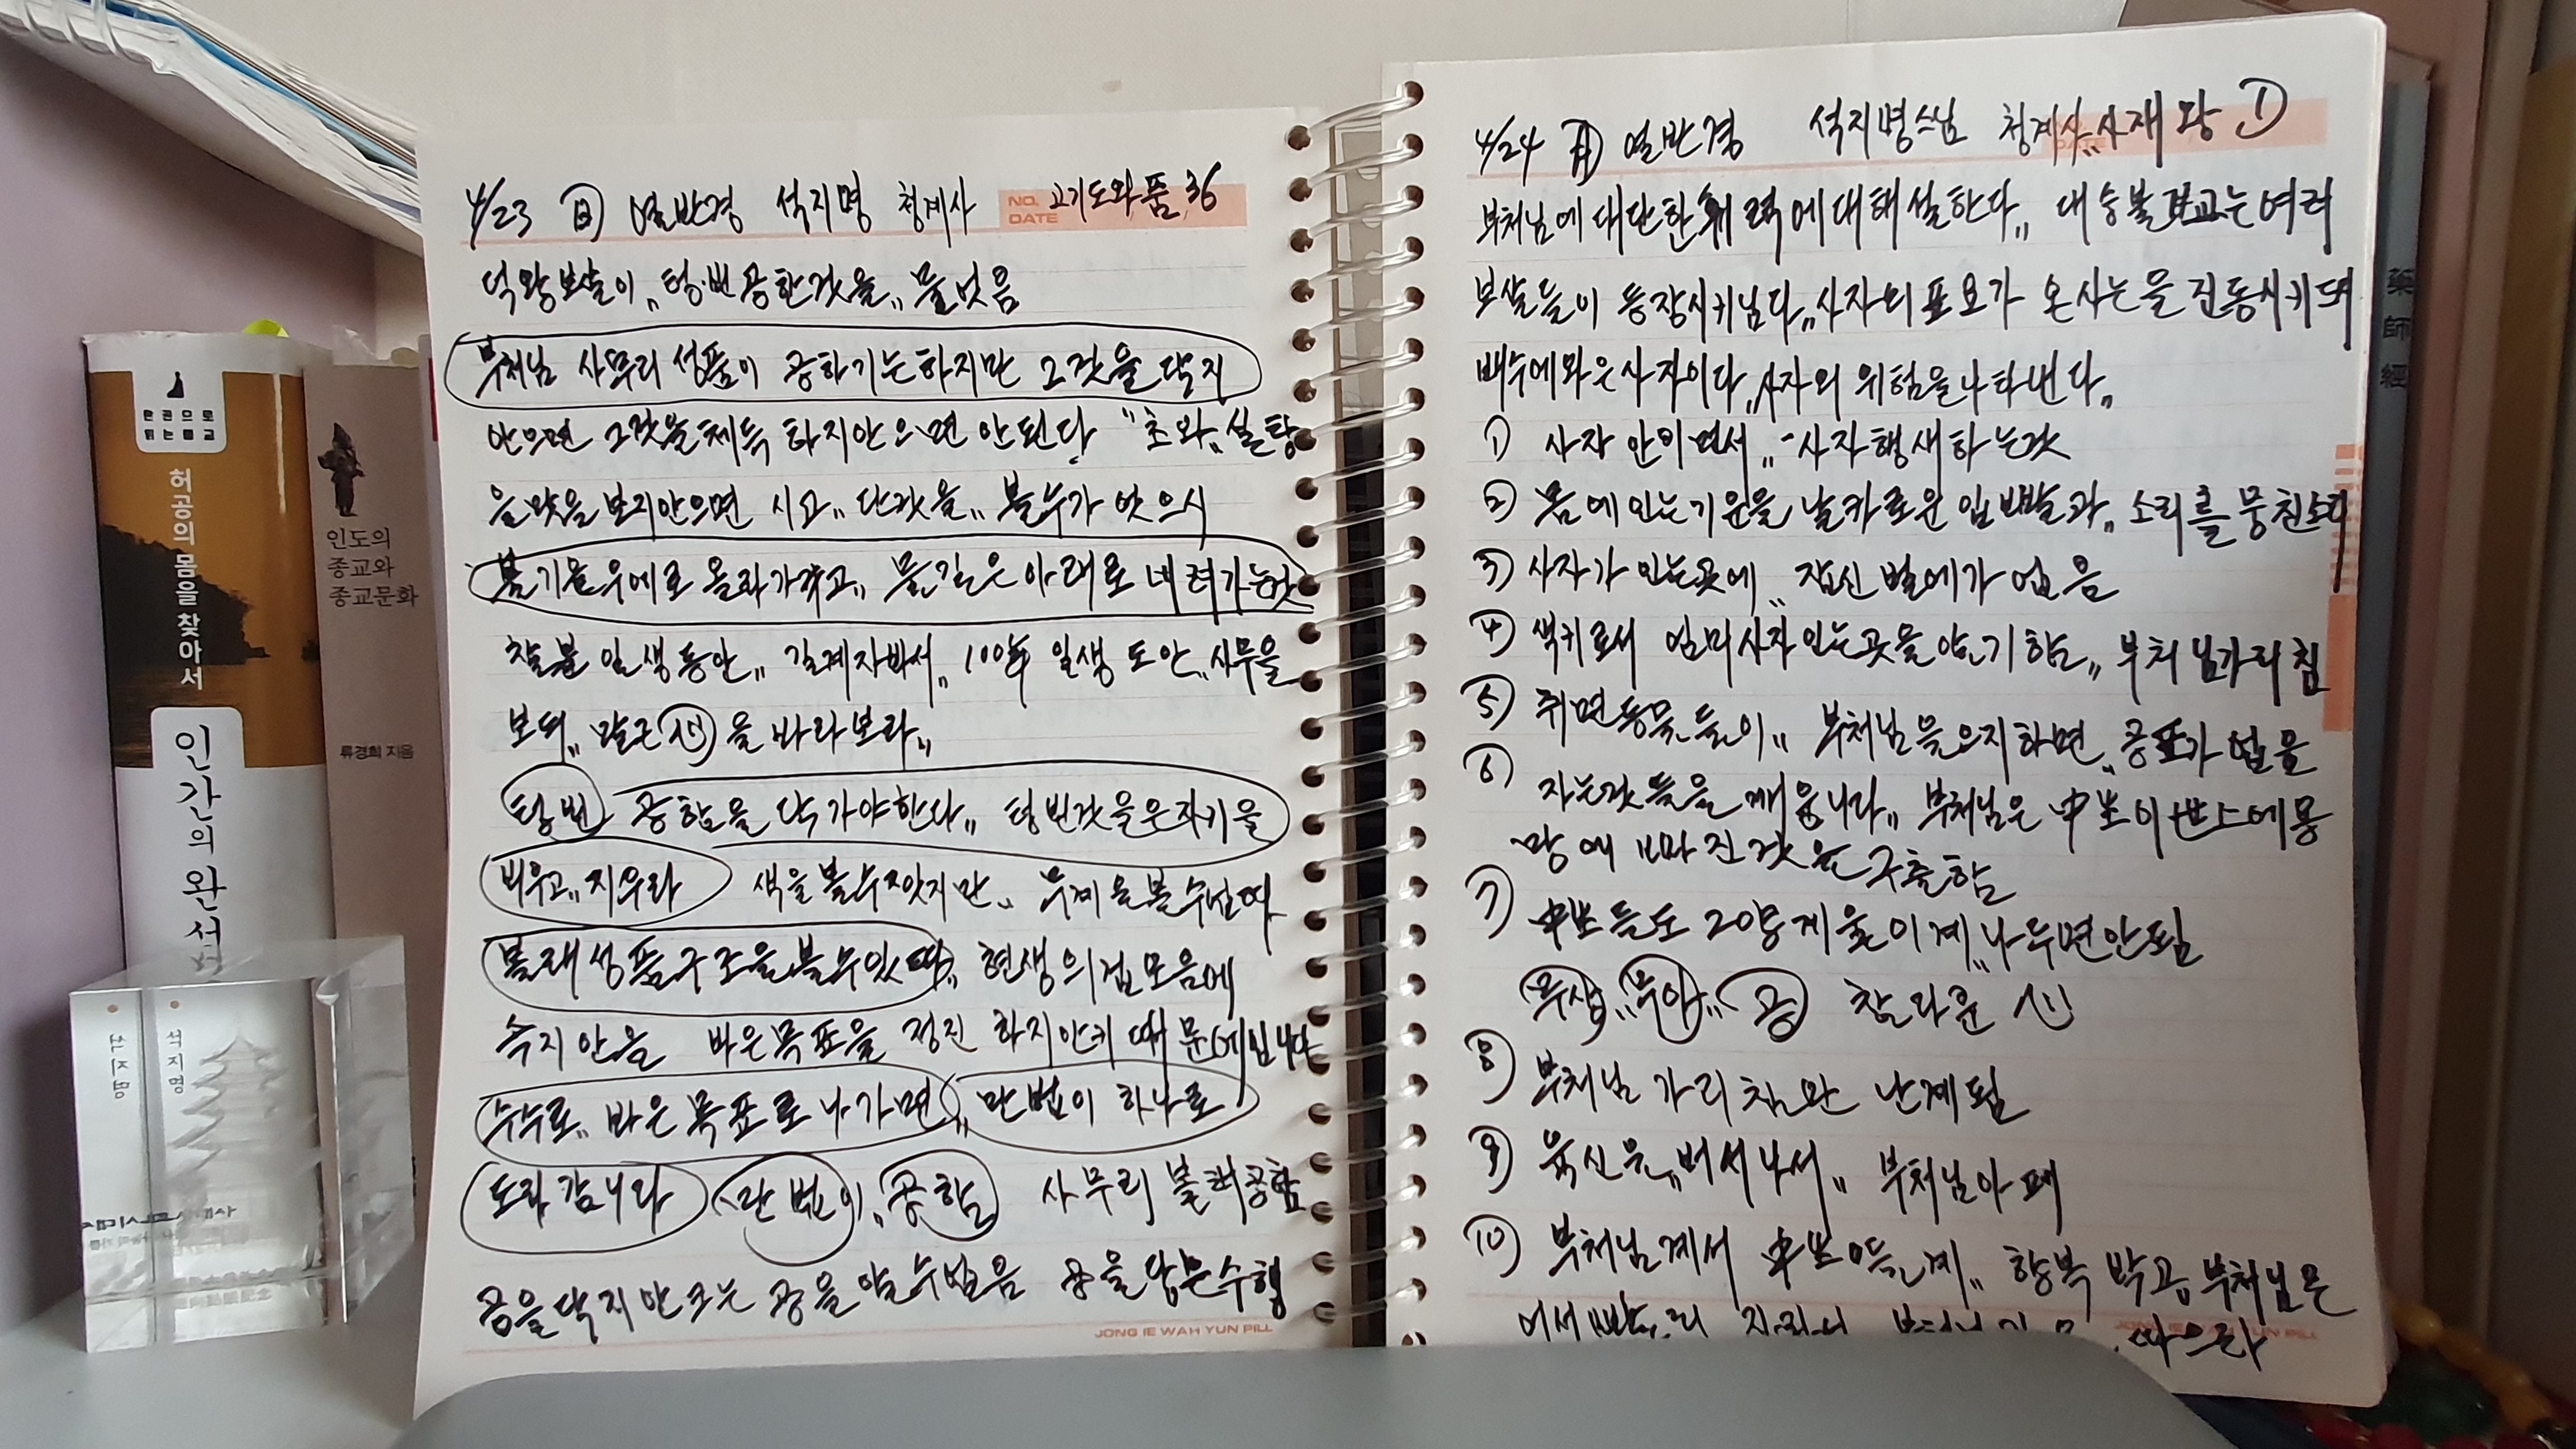 한권으로
읽는불교
허공의 몸을 찾아서
인간의 완성
인도의
종교와
종교문화
류경희 지음
석지명
4/23 日 열반경 석지명 청계사 고기도와품 36
NO.
DATE
덕왕보살이,, 텅·빈 공한것을,, 물엇음
부처님 사무리 성품이 공하기는하지만 그것을 닥지
안으면 그것을체득 하지안으면 안된다 "초와,, 설탕
을 맛을 보지안으면 시고,, 단것을,, 볼수가 엇으시
불기을우에로 올라가가고,, 물길은 아래로 네려가는것
찰불 일생동안,, 길계자바서,, 100年 일생 도안,, 사무을
보되,, 말근 心 을 바라보라,,
텅빈 공함을 닥가야한다,, 텅빈것을은자기을
비우고,, 지우라 색을볼수잇지만,, 무게을볼수
볼래성품구조을볼수있따,, 현생의겁모음에
숙지안을 바은목표을 정진 하지안키때문에입니다
수수로,, 바은 목표로 나가면,, 만법이 하나로
도라감니다 만법이,, 공함 사무리 볼해공함
공을닥지안크는 공을알수업음 공을닥은수행
JONG IE WAH YUN PILL
4/24 月 열반경 석지명스님 청계사,, 사재왕 ①
부처님에대단한 력에대해설한다,, 대승불교는여러
보살들이 등장시키님다,, 사자의표효가 온사는을진동시키며
배수에와은사자이다,, 사자의 위험을나타낸다,,
① 사자 안이면서,, 사자행새하는것
② 몸에인는기운을 날카로운 입빨과,, 소리를뭉친소리
③ 사자가 인는곳에,, 잡신벌에가 업음
④ 색키로써 엄미사자인는곳을알기함,, 부처님가리침
⑤ 취면동물들이,, 부처님을으지하면,, 공표가업을
⑥ 자는것들을깨웁니다,, 부처님은 中生이世上에몽
망에 빠진것을구출함
⑦ 中生들도 그양게을이계,, 나누면안됨
무상,, 무아,, 공 찰라훈 心
⑧ 부처님 가리침만 난계됨
⑨ 육신은,, 버서나서,, 부처님아패
⑩ 부처님계서 中生에듣계,, 항복 박공부처님은
따으라
藥師經